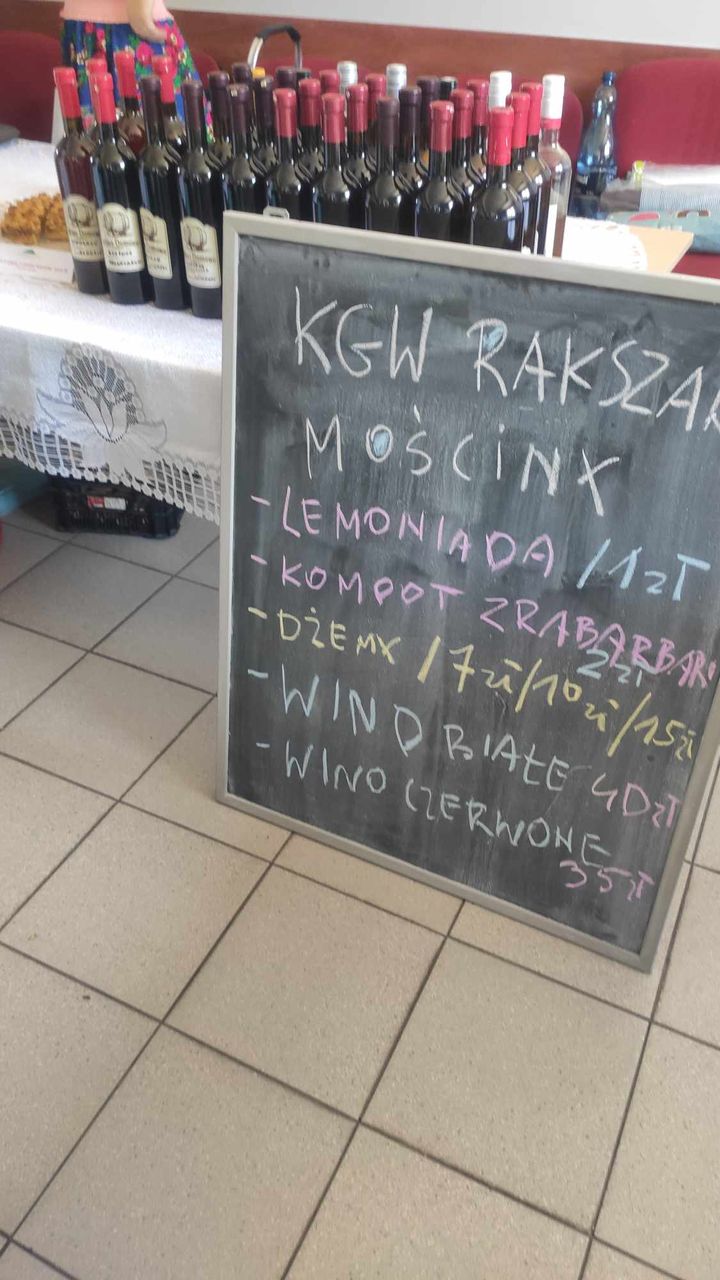 KGW RAKSZA
MOŚCINY
- LEMONIADA /1zł
- KOMPOT Z RABARBAR
2zł
- DŻEMY /7zł/10zł/15zł
- WINO BIAŁE 40zł
- WINO CZERWONE
35zł